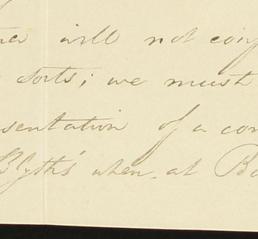 will not conf
sorts; we must
sentation of a con
Blyth's when at Ba